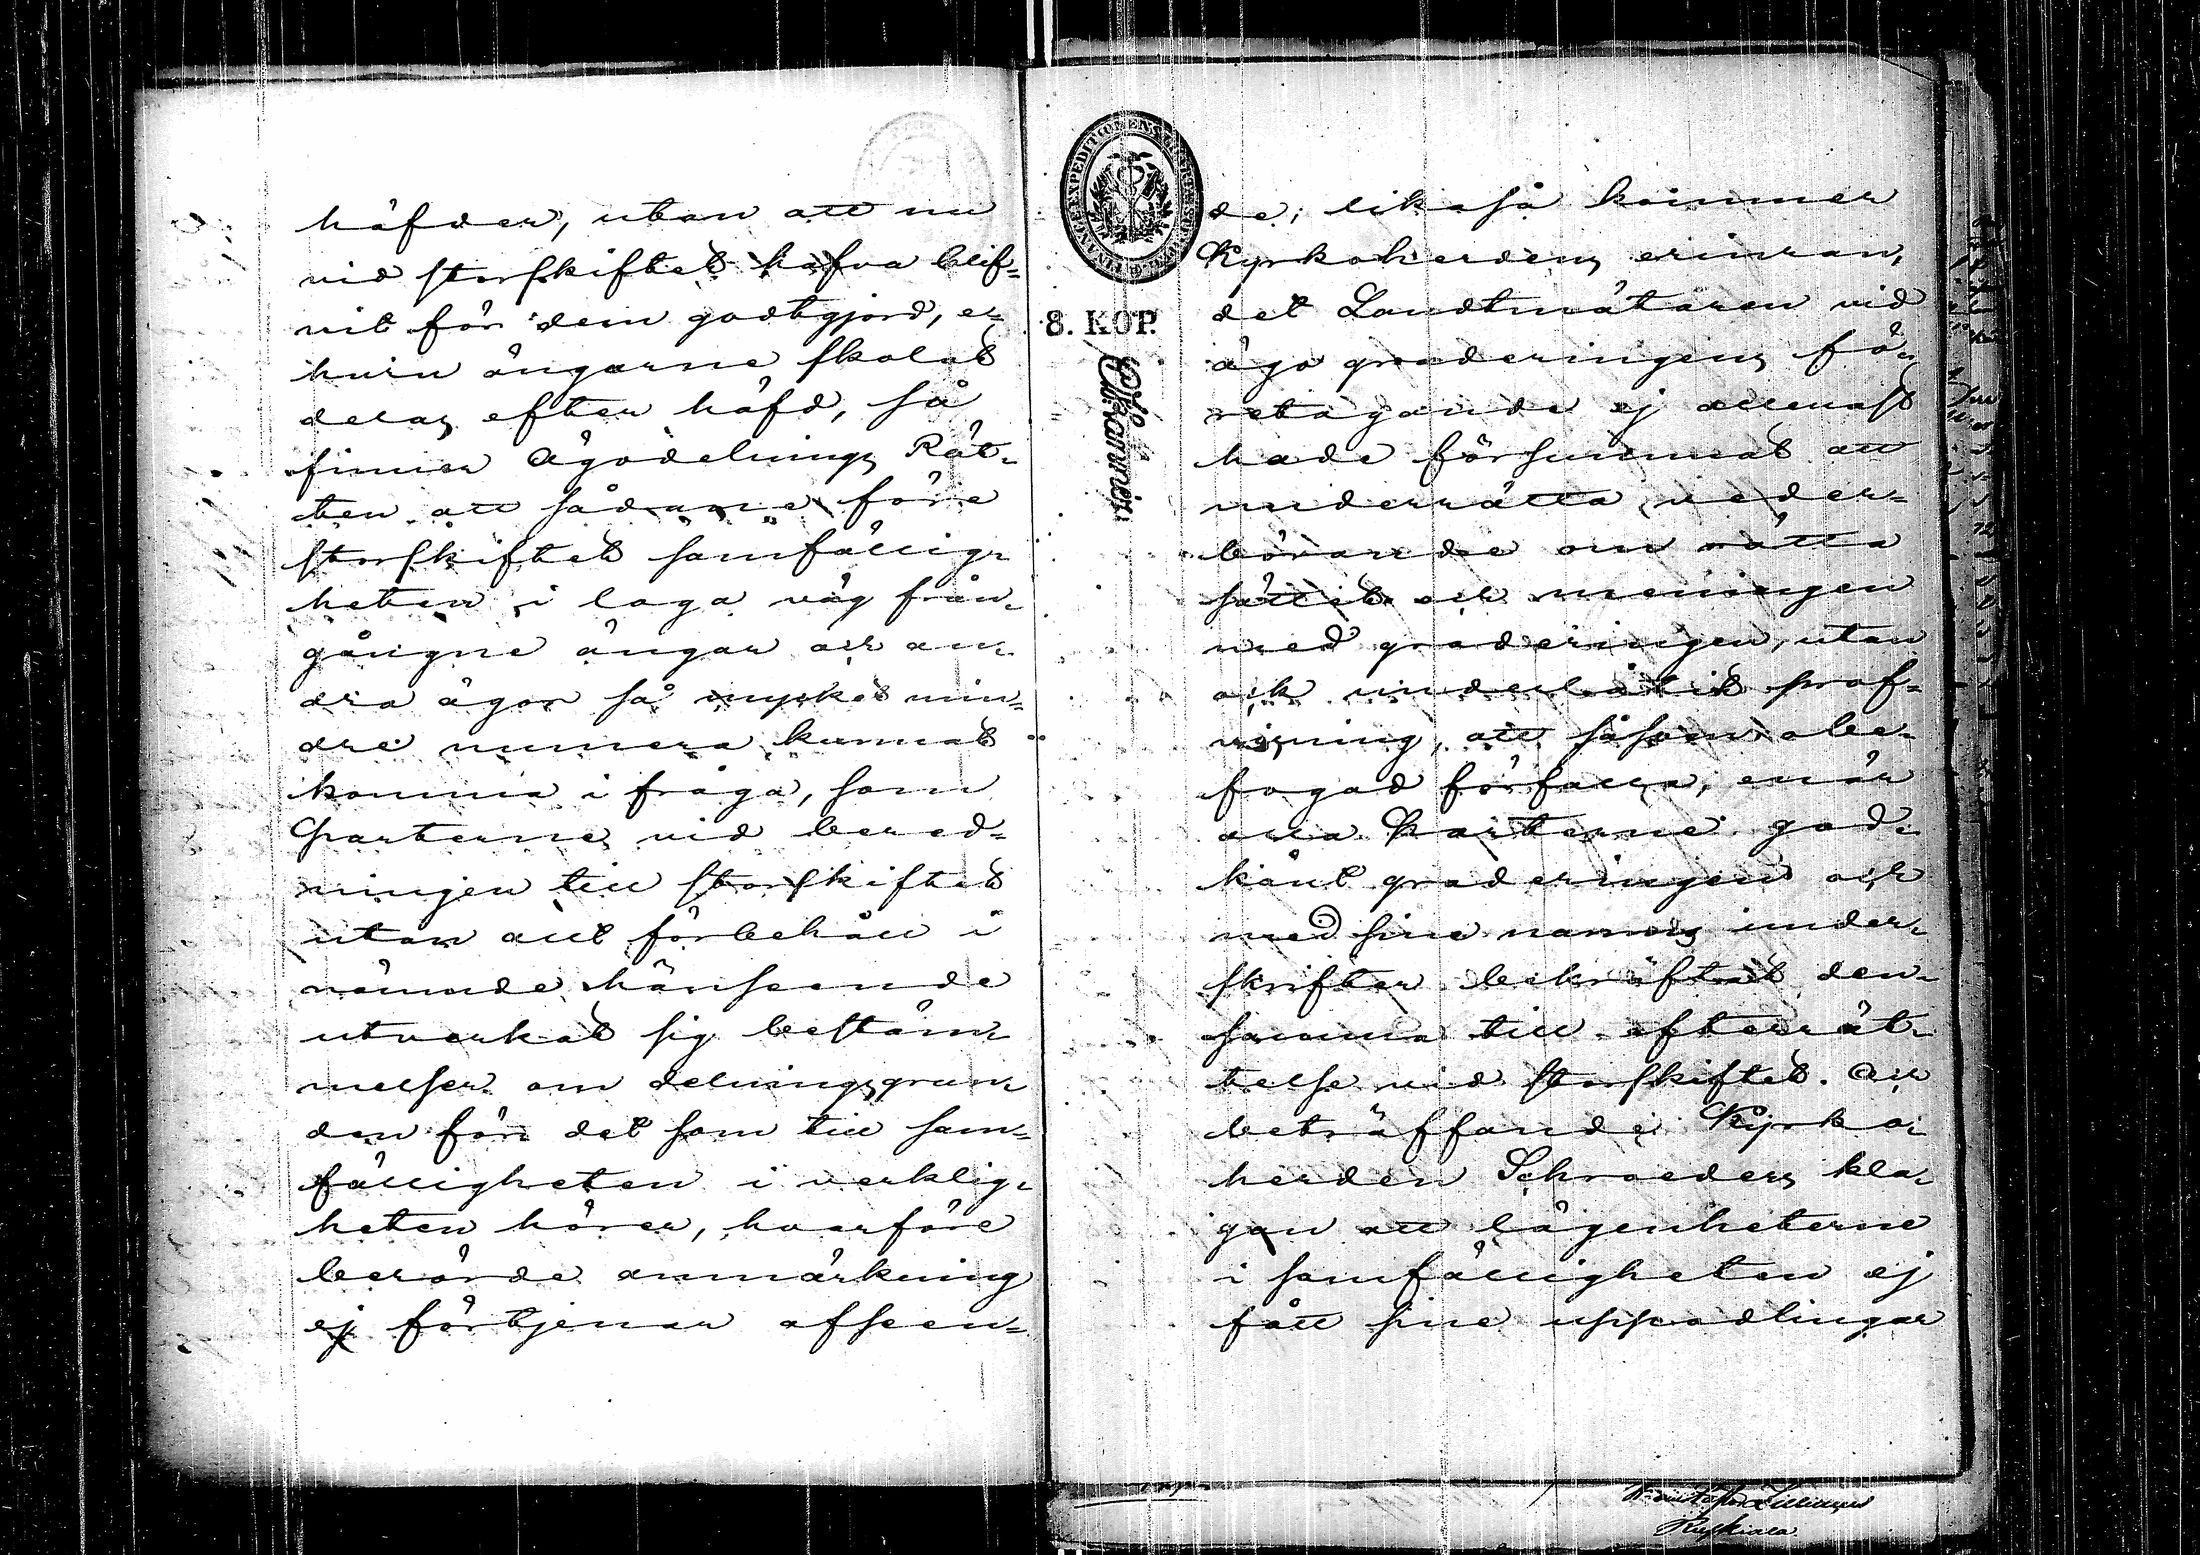 häfder, utan att nu
vid storskiftet hafva blif-
vit för dem godtgjord, e-
huru ängarne skolat
delas efter häfd, så
finner Ägodelnings Rät-
ten att sådane före
storskiftet samfällig-
heten i laga väg från-
gångne ängar och an-
dra ägor så mycket min-
dre numera kunnat
komma i fråga, som
Parterne vid bered-
ningen till storskiftet
utan allt förbehåll i
nämnde hänseende
utverkat sig bestäm-
melser om delningsgrun-
den för det som till sam-
fälligheten i verklig-
heten hörer, hvarföre
berörde anmärkning
ej förtjenar afseen-
FINANCE EXPEDITIONENS
8. KOP.
de; likaså kommer
Kyrkoherdens erinran,
det Landtmätaren vid
ägo graderingens fö-
retagande ej allenast
hade försummat att
underrätta veder-
börande om rätta
sättet och meningen
med graderingen, utan
ock underlåtit prof-
visning, att såsom obe-
fogad förfalla, enär
alla Parterne god-
känt graderingen och
med sine namns under-
skrifter bekräftat den-
samma till efterrät-
telse vid storskiftet. Och
beträffande Kyrko-
herden Schroeders kla-
gan att lägenheterne
i samfälligheten ej
fått sine uppodlingar
Ruskiala